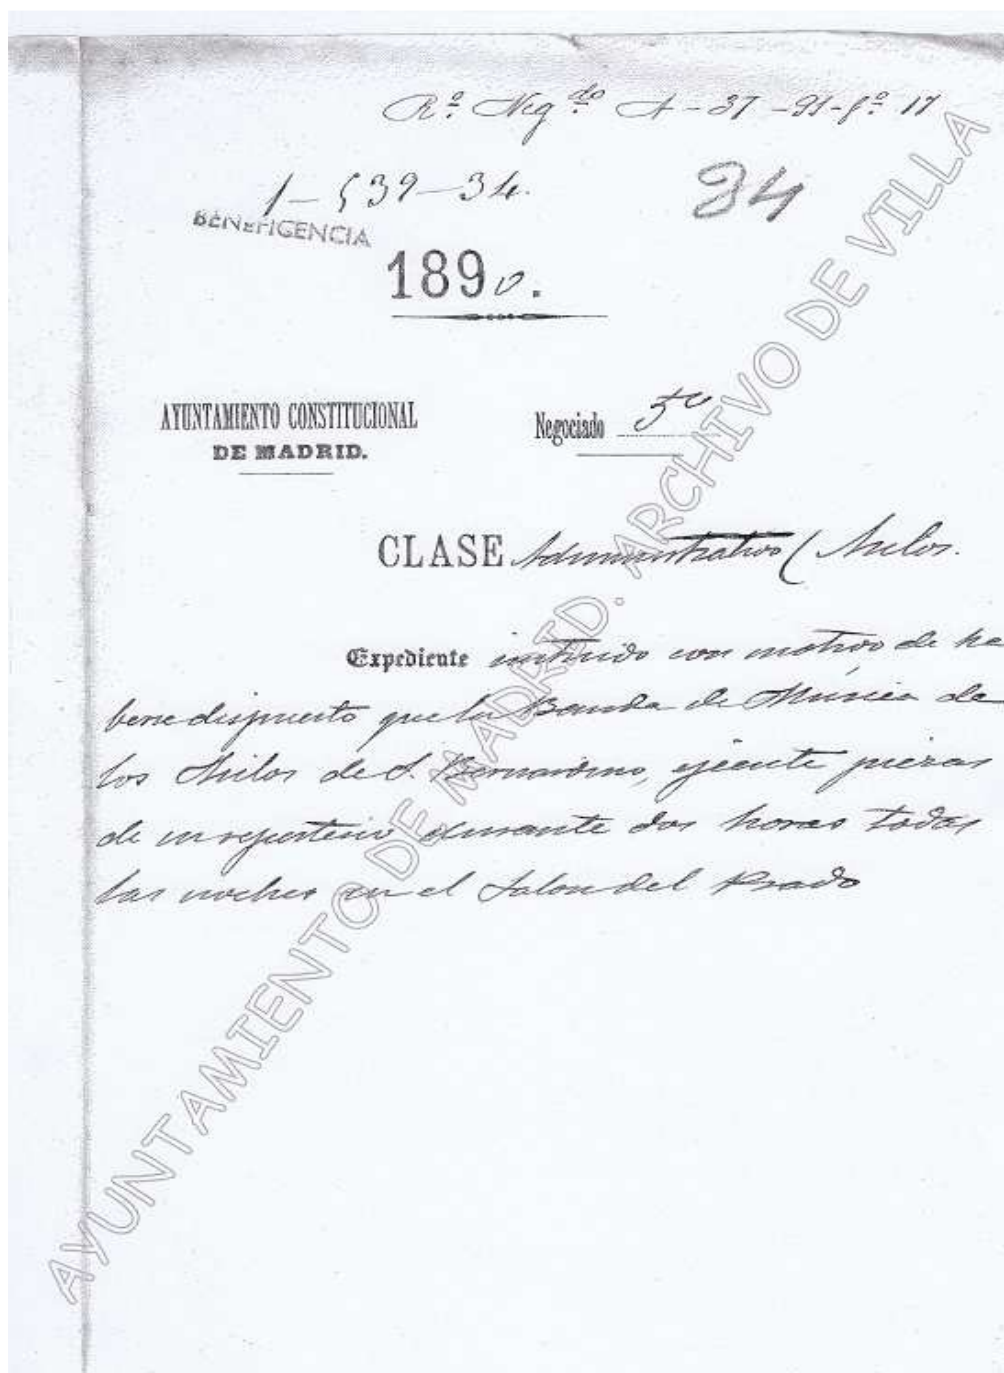 Rº Neg.do A-37-91-fº 17
1-539-34.
34
BENEFICENCIA
1890.
AYUNTAMIENTO CONSTITUCIONAL
DE MADRID.
Negociado 5º
CLASE Administrativo (Asilos.
Expediente instruido con motivo de ha
berse dispuesto que la Banda de Música de
los Asilos de S. Bernardino, ejecute piezas
de su repertorio durante dos horas todas
las noches en el Salon del Prado
AYUNTAMIENTO DE MADRID. ARCHIVO DE VILLA